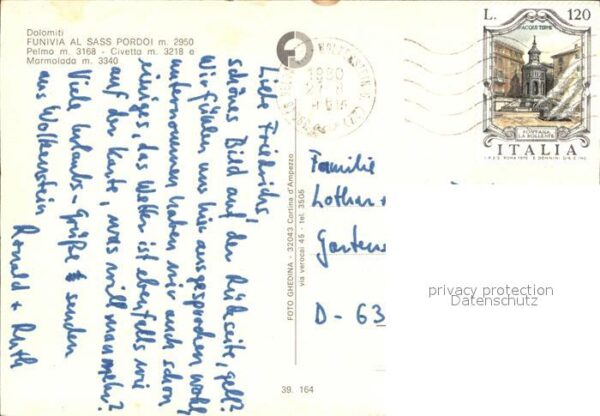 Dolomiti
FUNIVIA AL SASS PORDOI m. 2950
Pelmo m. 3168 - Civetta m. 3218 e
Marmolada m. 3340
Liebe Friedrichs,
schönes Bild auf der Rückseite, gell?
Wir fühlen uns hier ausgesprochen wohl,
unternommen haben wir auch schon
einiges, das Wetter ist ebenfalls wie
auf der Karte, was will man mehr?
Viele Urlaubs-Grüße senden
aus Wolkenstein
Ronald + Ruth
FOTO GHEDINA - 32043 Cortina d'Ampezzo
via verocai 45 - tel. 3505
39. 164
1980
27. 8
L. 120
ACQUI TERME
FONTANA
LA BOLLENTE
ITALIA
I.P.Z.S. ROMA 1976
Familie
Lothar +
Garten
D - 63
privacy protection
Datenschutz